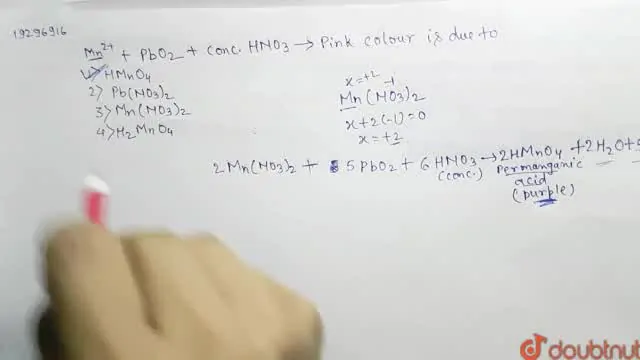 19296916
Mn²⁺ + PbO₂ + conc. HNO₃ → Pink colour is due to
1> HMnO₄
2> Pb(NO₃)₂
3> Mn(NO₃)₂
4> H₂MnO₄
x=+2 -1
Mn(NO₃)₂
x+2(-1)=0
x=+2
2Mn(NO₃)₂ + 5PbO₂ + 6HNO₃ → 2HMnO₄ + 2H₂O + 5
(conc.)
Permanganic
acid
(purple)
doubtnut